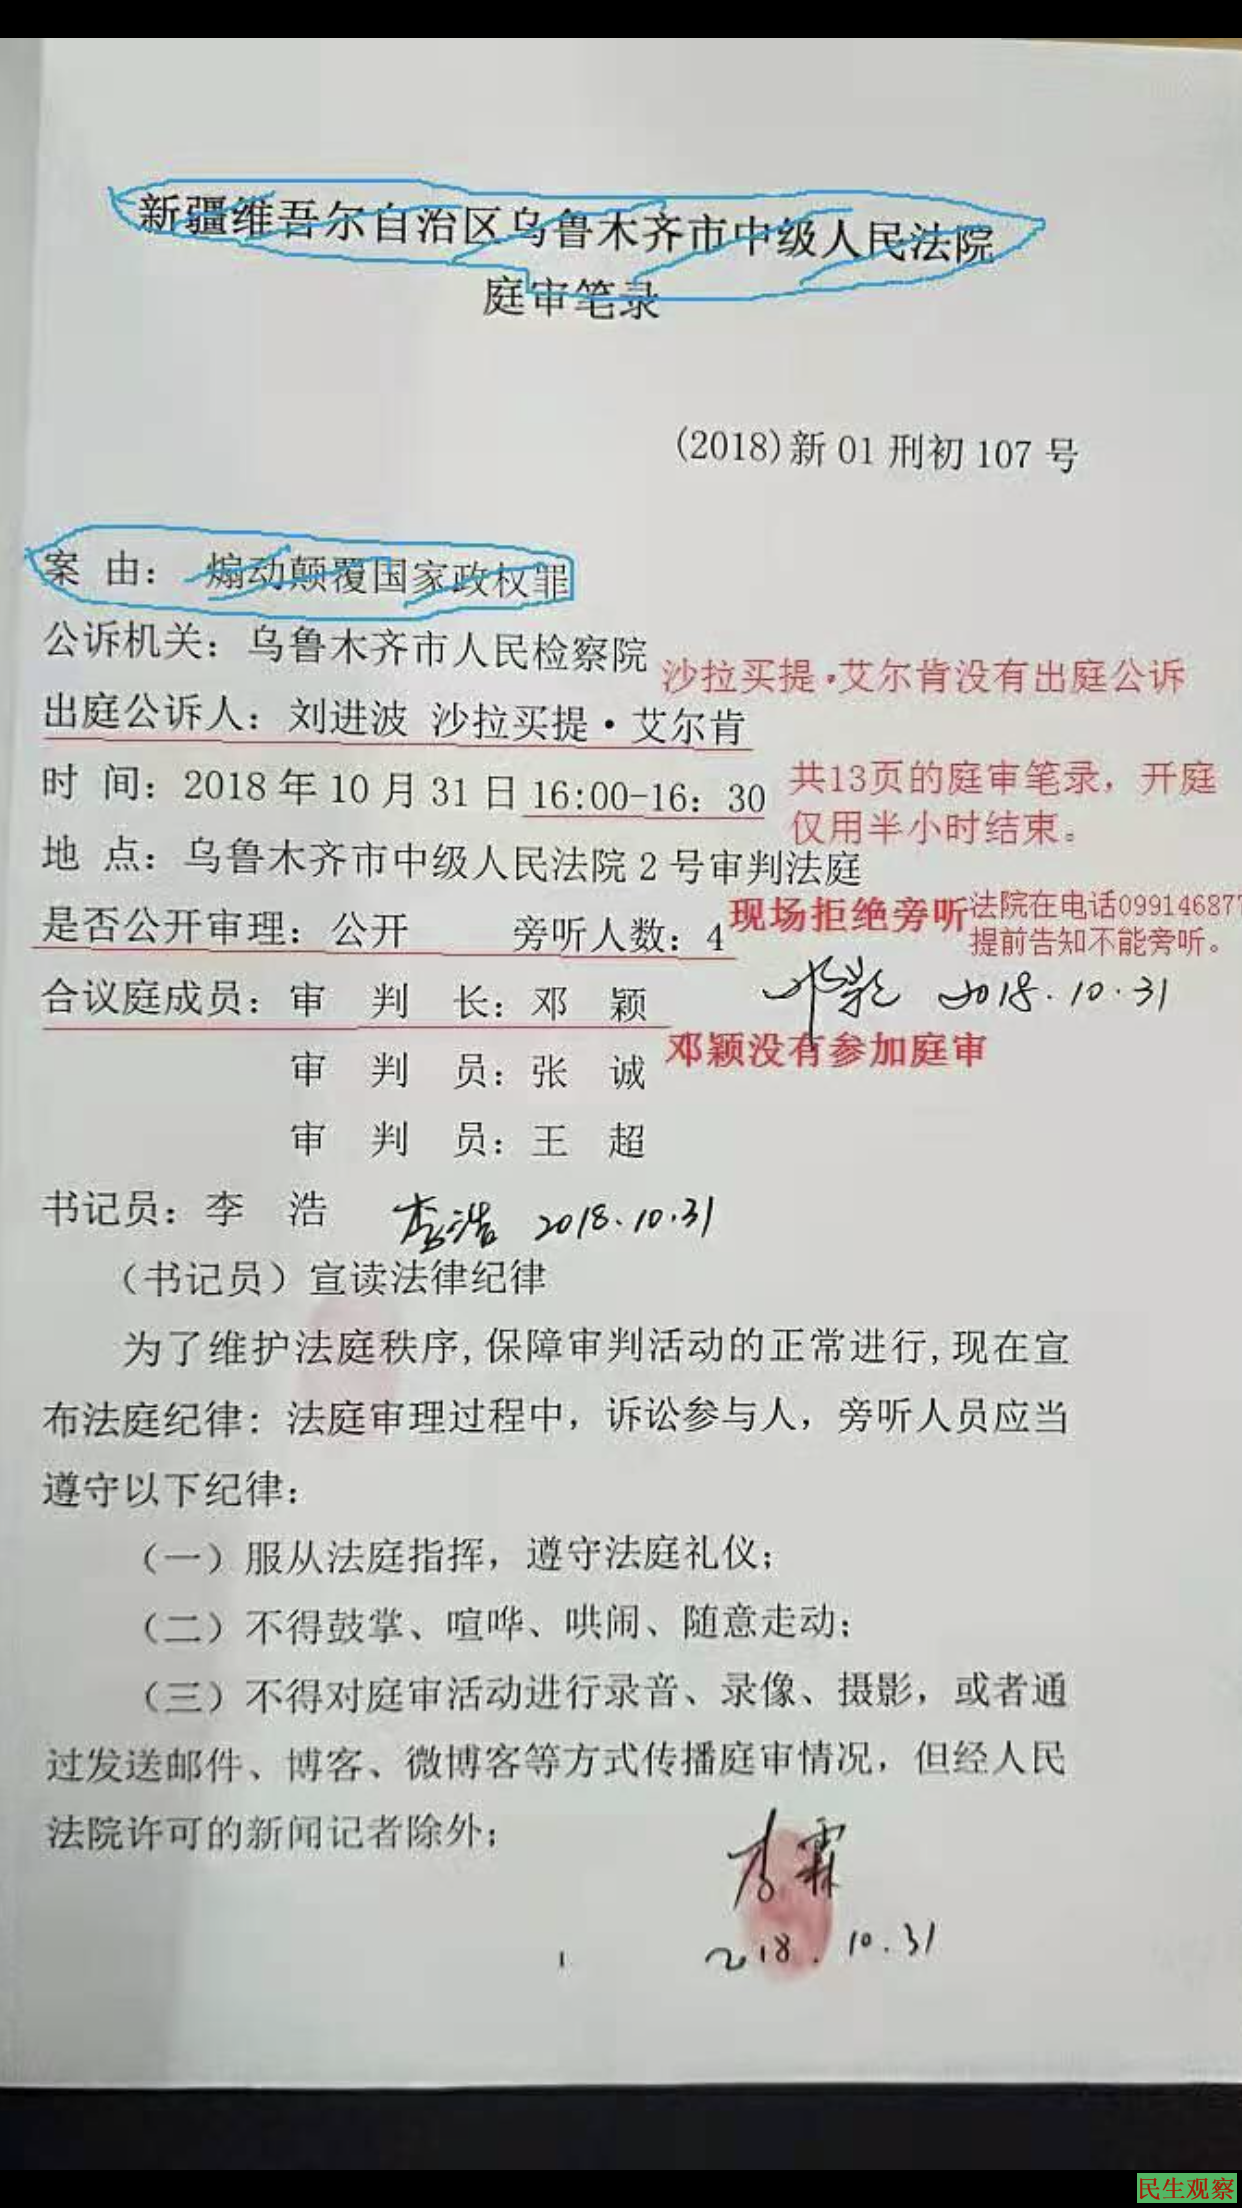 新疆维吾尔自治区乌鲁木齐市中级人民法院
庭审笔录
(2018)新 01 刑初 107 号
案 由： 煽动颠覆国家政权罪
公诉机关：乌鲁木齐市人民检察院
沙拉买提·艾尔肯没有出庭公诉
出庭公诉人：刘进波 沙拉买提·艾尔肯
时 间：2018 年 10 月 31 日 16:00-16：30
共13页的庭审笔录，开庭
仅用半小时结束。
地 点：乌鲁木齐市中级人民法院 2 号审判法庭
是否公开审理：公开 旁听人数：4
现场拒绝旁听
法院在电话099146877
提前告知不能旁听。
合议庭成员：审 判 长：邓 颖
邓颖 2018.10.31
邓颖没有参加庭审
审 判 员：张 诚
审 判 员：王 超
书记员：李 浩 李浩 2018.10.31
（书记员）宣读法律纪律
为了维护法庭秩序,保障审判活动的正常进行,现在宣
布法庭纪律：法庭审理过程中，诉讼参与人，旁听人员应当
遵守以下纪律：
（一）服从法庭指挥，遵守法庭礼仪；
（二）不得鼓掌、喧哗、哄闹、随意走动；
（三）不得对庭审活动进行录音、录像、摄影，或者通
过发送邮件、博客、微博客等方式传播庭审情况，但经人民
法院许可的新闻记者除外；
李霖
2018.10.31
1
民生观察